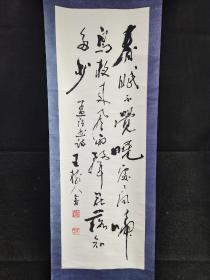 春眠不覺曉處々聞啼
鳥夜來風雨聲花落知
多少
孟浩然詩 王